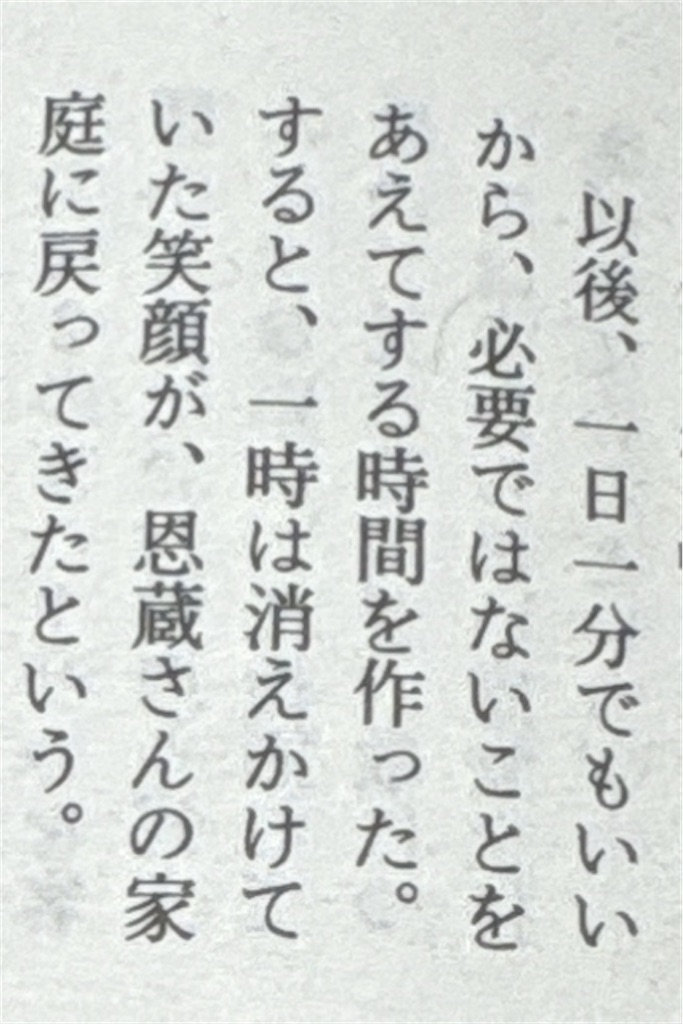 以後、一日一分でもいい
から、必要ではないことを
あえてする時間を作った。
すると、一時は消えかけて
いた笑顔が、恩蔵さんの家
庭に戻ってきたという。